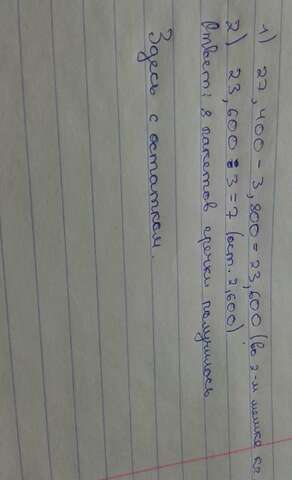 1) 27,400 - 3,800 = 23,600 (во 2-м мешке кг
2) 23,600 : 3 = 7 (ост. 2,600)
Ответ: 8 пакетов гречки получилось
Здесь с остатком.